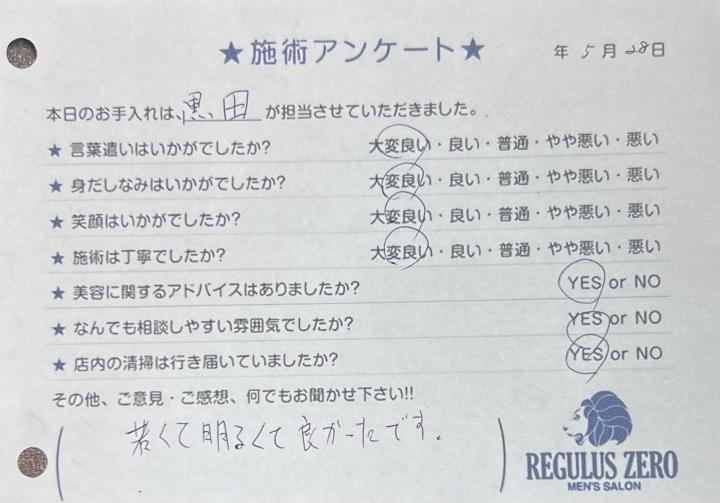 ★施術アンケート★
年 5月28日
本日のお手入れは、黒田が担当させていただきました。
★ 言葉遣いはいかがでしたか? 大変良い・良い・普通・やや悪い・悪い
★ 身だしなみはいかがでしたか? 大変良い・良い・普通・やや悪い・悪い
★ 笑顔はいかがでしたか? 大変良い・良い・普通・やや悪い・悪い
★ 施術は丁寧でしたか? 大変良い・良い・普通・やや悪い・悪い
★ 美容に関するアドバイスはありましたか? YES or NO
★ なんでも相談しやすい雰囲気でしたか? YES or NO
★ 店内の清掃は行き届いていましたか? YES or NO
その他、ご意見・ご感想、何でもお聞かせ下さい!!
若くて明るくて良かったです。
REGULUS ZERO
MEN'S SALON